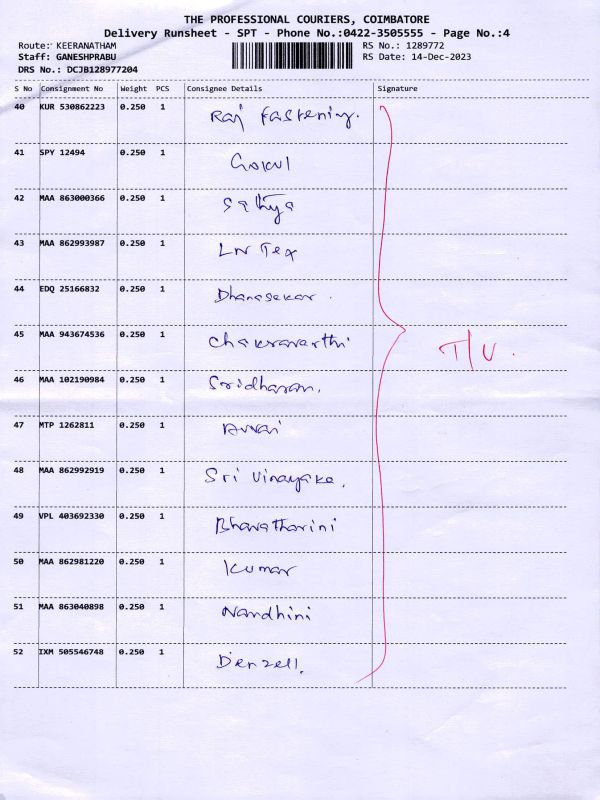 THE PROFESSIONAL COURIERS, COIMBATORE
Delivery Runsheet - SPT - Phone No.:0422-3505555 - Page No.:4
Route: KEERANATHAM RS No.: 1289772
Staff: GANESHPRABU RS Date: 14-Dec-2023
DRS No.: DCJB128977204
S No Consignment No Weight PCS Consignee Details Signature
40 KUR 530862223 0.250 1 Raj Fastening.
41 SPY 12494 0.250 1 Gokul
42 MAA 863000366 0.250 1 Sathya
43 MAA 862993987 0.250 1 LN Tex
44 EDQ 25166832 0.250 1 Dhanasekar.
45 MAA 943674536 0.250 1 Chakravarthi
T/U.
46 MAA 102190984 0.250 1 Sridharan.
47 MTP 1262811 0.250 1 Avvai
48 MAA 862992919 0.250 1 Sri Vinayaka.
49 VPL 403692330 0.250 1 Bharatharini
50 MAA 862981220 0.250 1 Kumar
51 MAA 863040898 0.250 1 Nandhini
52 IXM 505546748 0.250 1 Denzell.